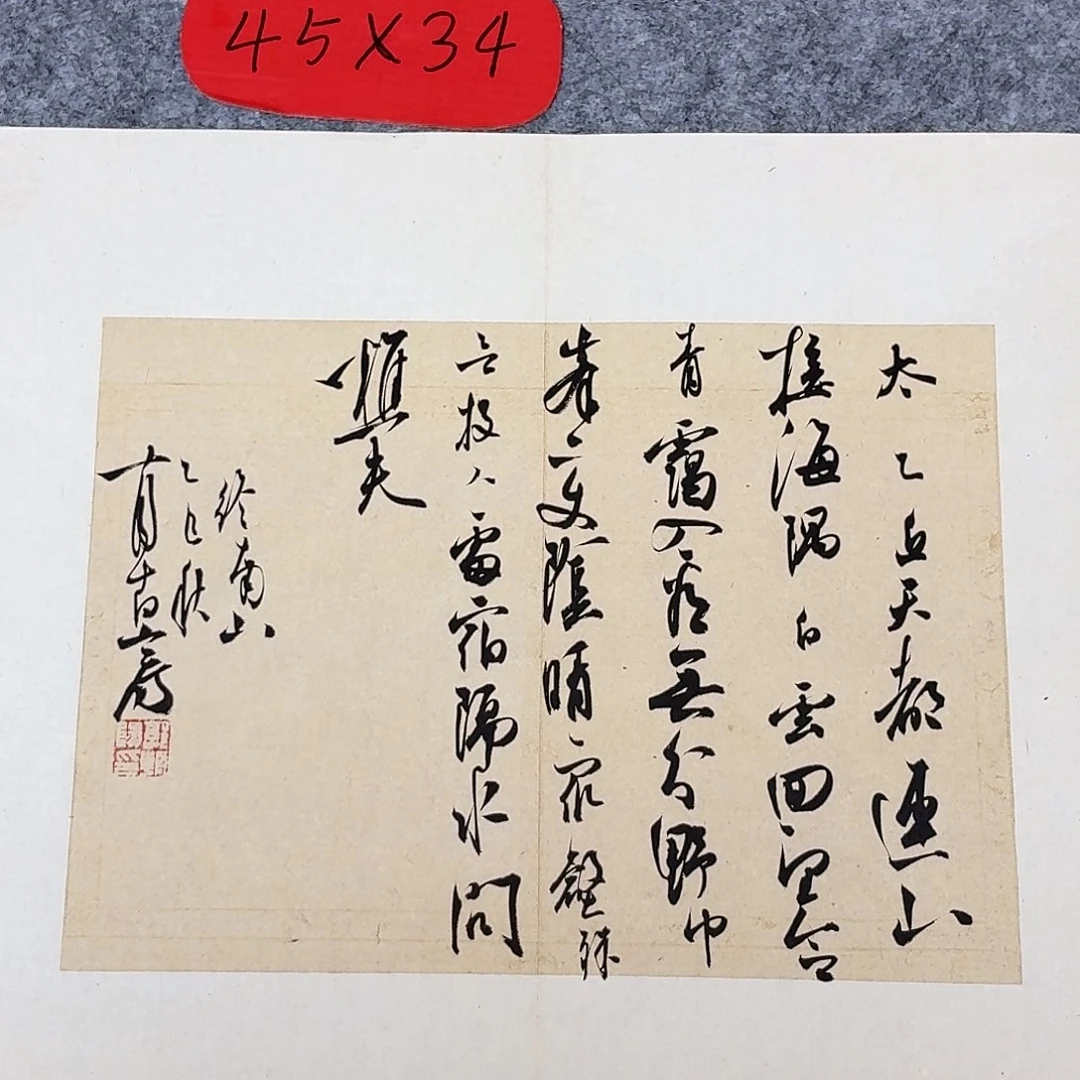 45X34
太乙近天都連山
接海隅白雲回望合
青靄入看無分野中
峯變陰晴眾壑殊
欲投人處宿隔水問
樵夫
終南山
乙巳秋